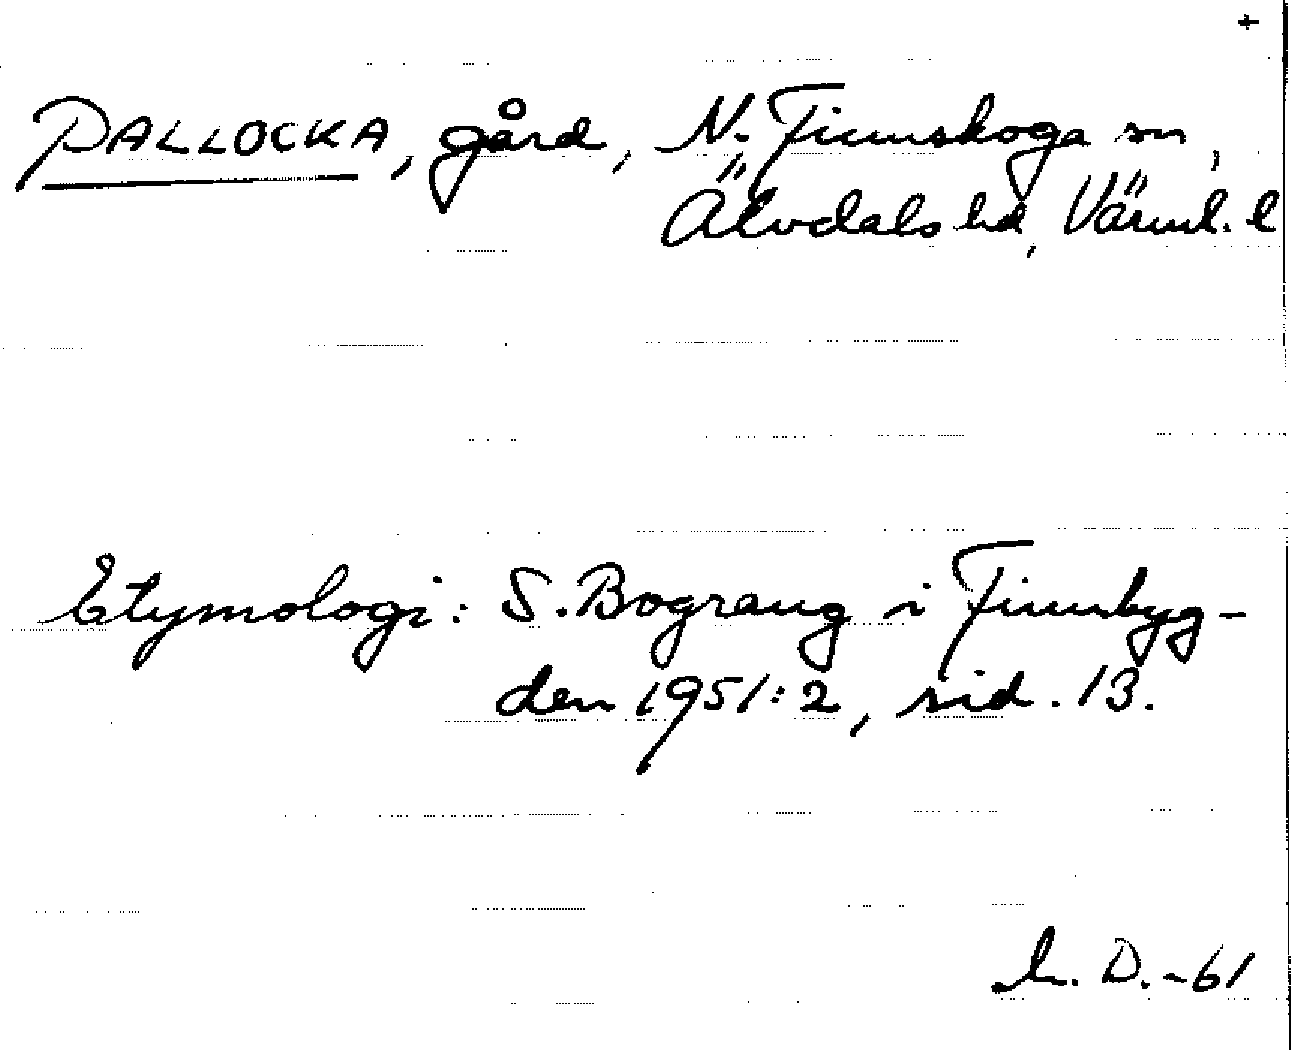 +
PALLOCKA, gård, N. Finnskoga sn,
Älvdals hd, Värml. l
Etymologi: S. Bograng i Finnbyg-
den 1951:2, sid. 13.
D. -61